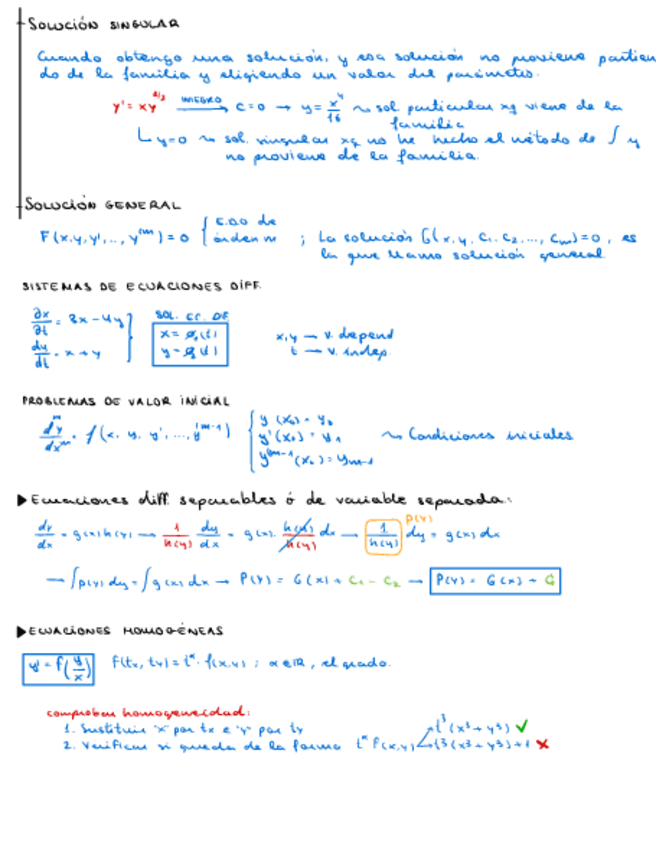 SOLUCIÓN SINGULAR
Cuando obtengo una solución, y esa solución no proviene partien
do de la familia y eligiendo un valor del parámetro.
y' = xy^{1/2} INTEGRO → C=0 → y = x⁴/16 ~ sol. particular xq viene de la
familia
↳ y=0 ~ sol. singular xq no he hecho el método de ∫ y
no proviene de la familia.
SOLUCIÓN GENERAL
F(x,y,y',..., y^{(n)}) = 0 { E.D.O de
órden n ; La solución G(x,y,C₁,C₂,..., Cₙ)=0, es
la que llamo solución general
SISTEMAS DE ECUACIONES DIFF.
∂x/∂t = 3x - 4y } SOL. EC. DIF
dy/dt = x + y
x = φ₁(t)
y = φ₂(t)
x,y → v. depend
t → v. indep.
PROBLEMAS DE VALOR INICIAL
dⁿy/dxⁿ = f(x, y, y', ..., y^{n-1}) { y(x₀) = y₀
y'(x₀) = y₁ ~ Condiciones iniciales
y^{n-1}(x₀) = yₙ₋₁
▶ Ecuaciones diff. separables ó de variable separada:
dy/dx = g(x)h(y) → 1/h(y) dy/dx = g(x) · h(y)/h(y) dx → 1/h(y) dy = g(x) dx
p(y)
→ ∫p(y) dy = ∫g(x) dx → P(y) = G(x) + C₁ - C₂ → P(y) = G(x) + C
▶ ECUACIONES HOMOGÉNEAS
y' = f(y/x) F(tx, ty) = t^α · f(x,y) ; α ∈ ℝ, el grado.
comprobar homogeneidad:
1. Sustituir "x" por tx e "y" por ty
2. Verificar si queda de la forma t^α F(x,y)
t³(x³+y³) ✓
t³(x³+y³)+1 ✗